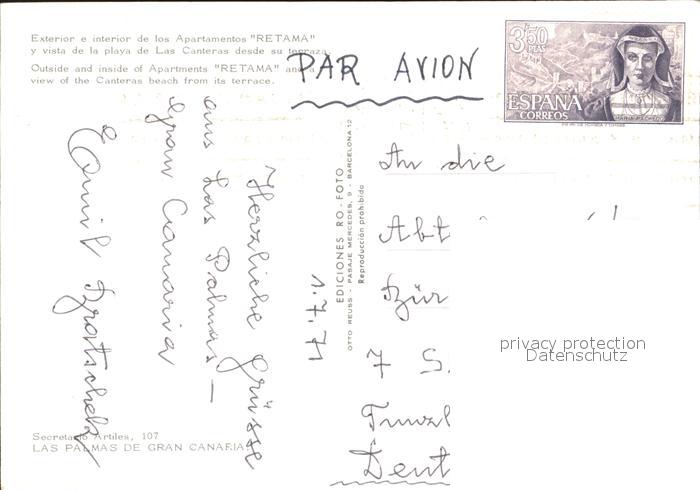 Exterior e interior de los Apartamentos "RETAMA"
y vista de la playa de Las Canteras desde su terraza.
Outside and inside of Apartments "RETAMA" and a
view of the Canteras beach from its terrace.
PAR AVION
3,50
PTAS
ESPAÑA
CORREOS
MARIA PACHECO
1.7.71
Herzliche Grüsse
aus Las Palmas –
Gran Canaria
Emil
EDICIONES RO-FOTO
OTTO REUSS - PASAJE MERCEDES, 9 - BARCELONA-12
Reproducción prohibida
An die
Abt
7 S.
privacy protection
Datenschutz
Secretario Artiles, 107
LAS PALMAS DE GRAN CANARIA